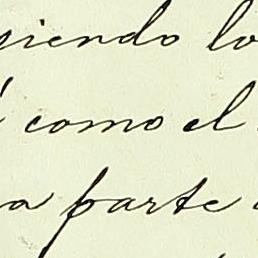 giendo lo
como el
a parte